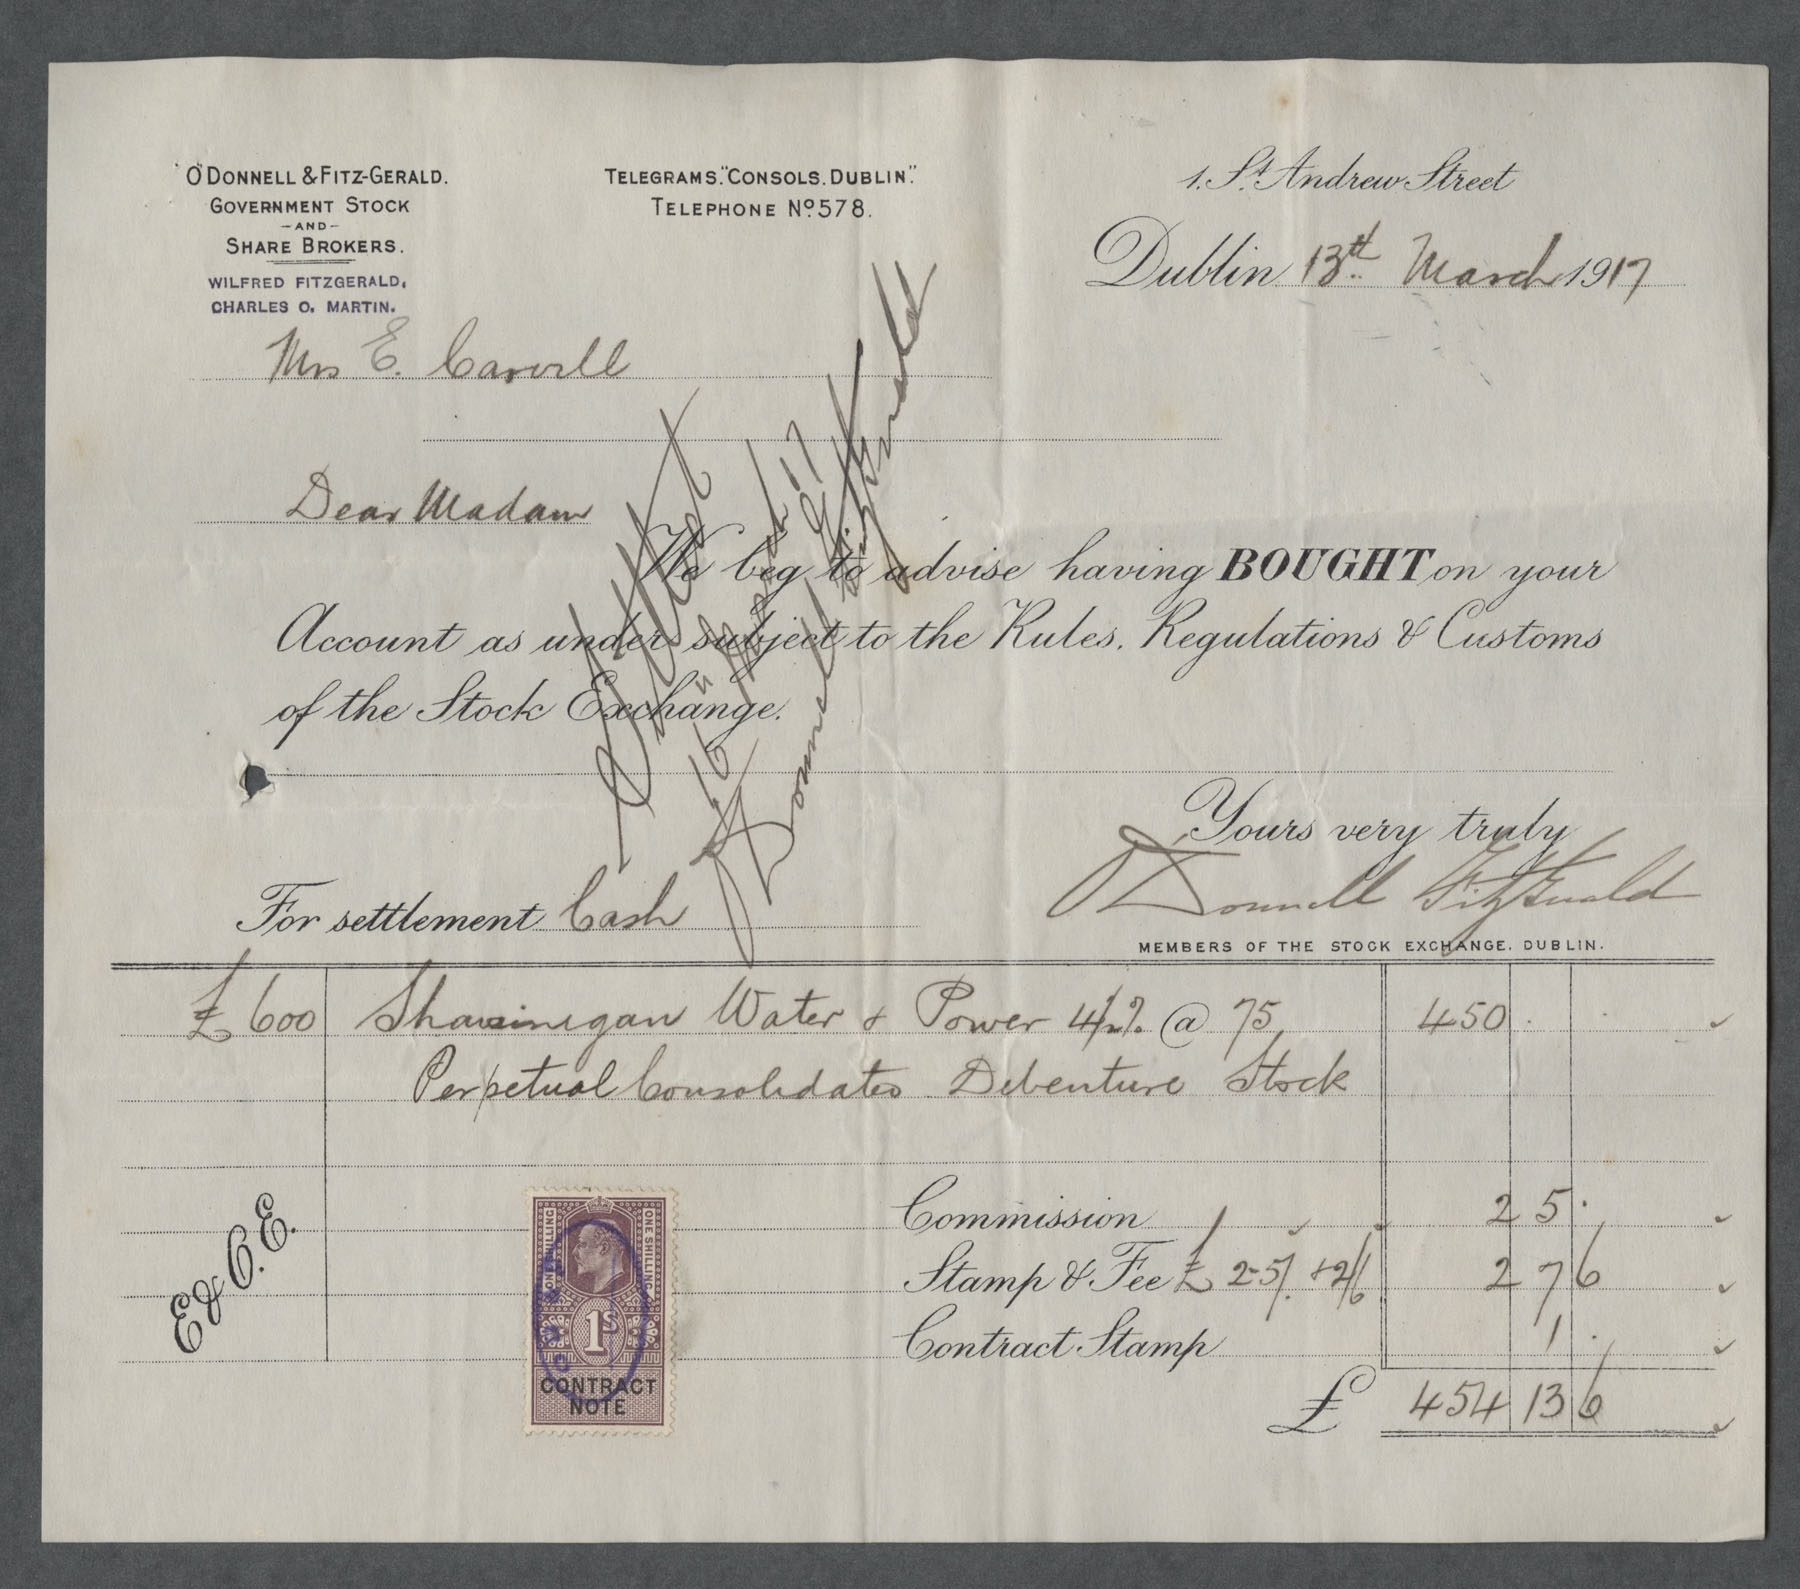 O'DONNELL & FITZ-GERALD.
GOVERNMENT STOCK
-AND-
SHARE BROKERS.
WILFRED FITZGERALD,
CHARLES O. MARTIN.
TELEGRAMS. "CONSOLS. DUBLIN."
TELEPHONE No. 578.
1. St. Andrew Street
Dublin 13th March 1917
Mrs E. Carvill
Dear Madam
We beg to advise having BOUGHT on your
Account as under subject to the Rules. Regulations & Customs
of the Stock Exchange.
16 17
O'Donnell Fitzgerald
Yours very truly
O'Donnell Fitzgerald
For settlement Cash
MEMBERS OF THE STOCK EXCHANGE. DUBLIN.
£600 Shawinigan Water & Power 4½% @ 75 450 . .
Perpetual Consolidated Debenture Stock
E & O. E.
Commission 2 5 .
Stamp & Fee £2-5/. + 2/6 2 7 6
Contract Stamp 1 .
£ 454 13 6
ONE SHILLING
ONE SHILLING
1s
CONTRACT
NOTE